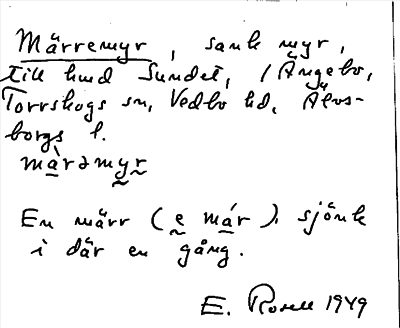 Märremyr, sank myr,
till hmd Sundet, i Ängebo,
Torrskogs sn, Vedbo hd, Älvs-
borgs l.
màrəmyr
En märr (e már) sjönk
i där en gång.
E. Rosell 1949